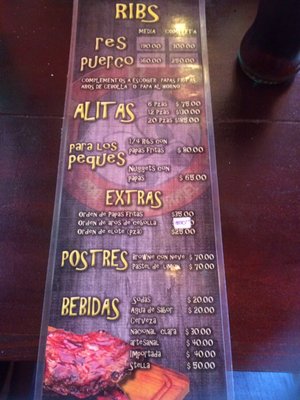 RIBS
MEDIA COMPLETA
res 190.00 300.00
puerco 160.00 250.00
COMPLEMENTOS A ESCOGER PAPAS FRITAS
AROS DE CEBOLLA O PAPA AL HORNO
ALITAS
6 Pzas $ 75.00
12 Pzas $130.00
20 Pzas $185.00
para los peques
1/4 Ribs con
papas fritas $ 80.00
Nuggets con
papas $ 65.00
EXTRAS
Orden de papas fritas $15.00
Orden de aros de cebolla
Orden de elote (pza) $25.00
POSTRES
Browne con nieve $ 70.00
Pastel de limon $ 70.00
BEBIDAS
Sodas $ 20.00
Agua de sabor $ 20.00
Cerveza
Nacional clara $ 30.00
artesanal $ 40.00
Importada $ 40.00
Stella $ 50.00